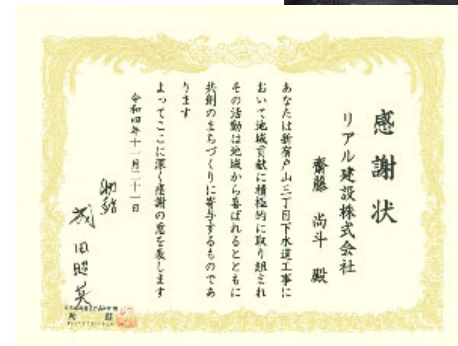 感謝状
リアル建設株式会社
齋藤 尚斗 殿
あなたは新宿戸山三丁目下水道工事に
おいて地域貢献に積極的に取り組まれ
その活動は地域から喜ばれるとともに
共創のまちづくりに寄与するものであ
ります
よってここに深く感謝の意を表します
令和四年十一月二十一日